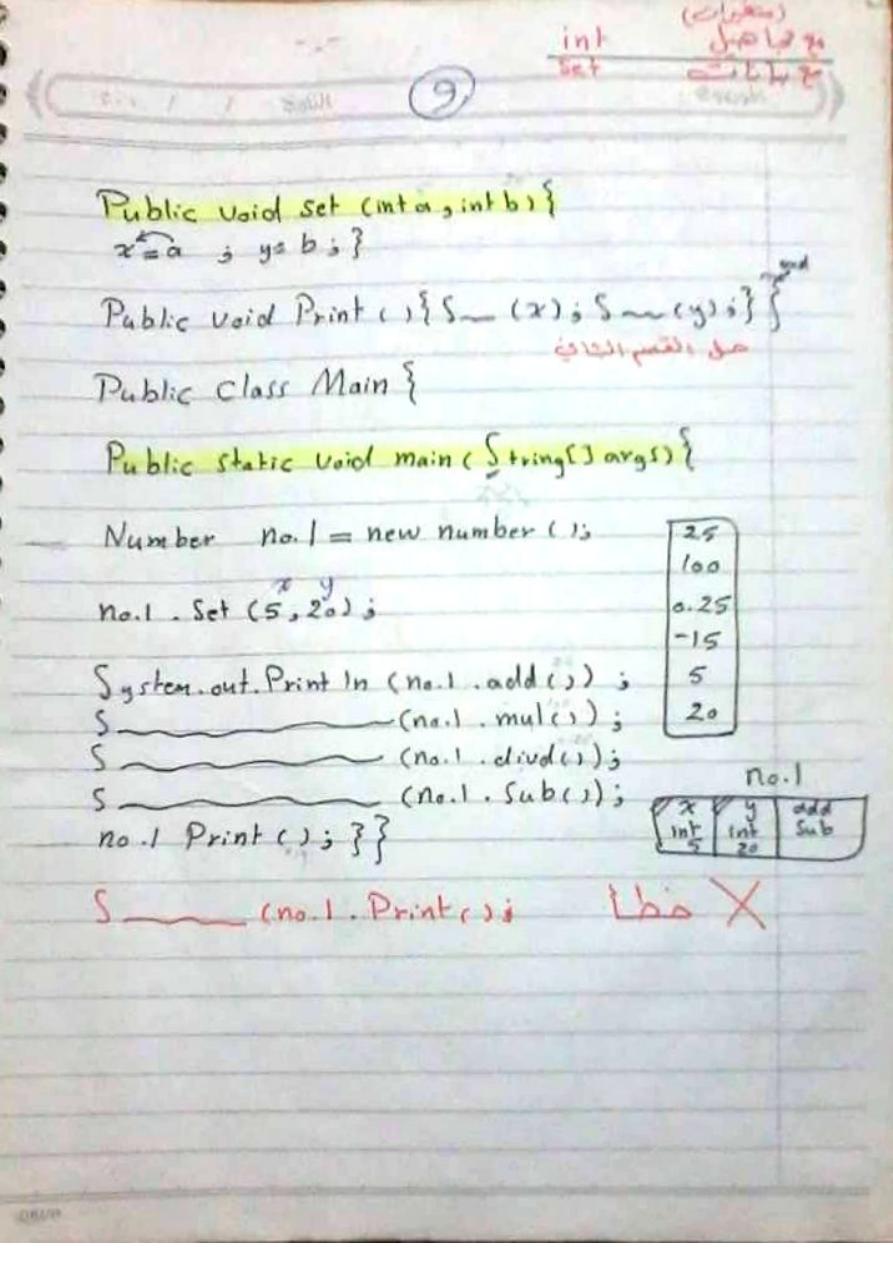 (متغيرات)
int مجاهيل
set بيانات
9
Public void set (int a, int b) {
x = a ; y = b ; }
Public void Print ( ) { S (x) ; S (y) ; } } end
حل القسم الثاني
Public Class Main {
Public static void main ( String [ ] args) {
Number no.1 = new number ( ) ;
x y
no.1 . Set (5 , 20) ;
System.out.Print ln (no.1 .add ( ) ) ;
S (no.1 . mul ( ) ) ;
S (no.1 . divd ( ) ) ;
S (no.1 . Sub ( ) ) ;
no.1 Print ( ) ; } }
S (no.1 . Print ( ) ; خطأ X
25
100
0.25
-15
5
20
no.1
x y add
int int Sub
5 20